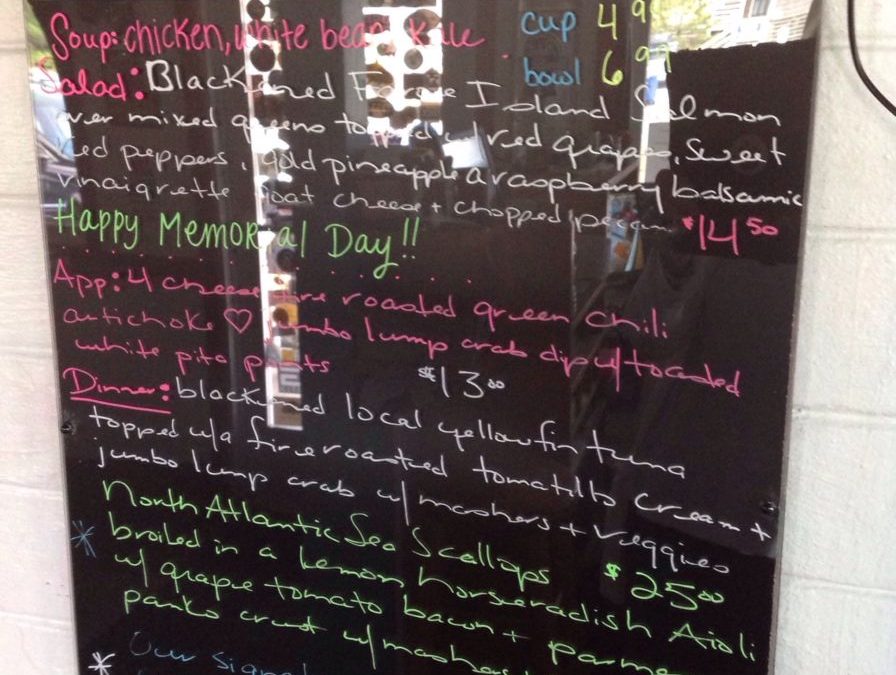 Soup: chicken, white bean, kale cup 4 99
bowl 6 99
Salad: Blackened Faroe Island Salmon
over mixed greens topped w/ red grapes, sweet
red peppers, gold pineapple a raspberry balsamic
vinaigrette goat cheese + chopped pecans $14 50
Happy Memorial Day!!
App: 4 cheese fire roasted green chili
artichoke ♡ jumbo lump crab dip w/ toasted
white pita points $13.00
Dinner: blackened local yellowfin tuna
topped w/a fire roasted tomatillo cream +
jumbo lump crab w/ mashers + veggies
North Atlantic Sea Scallops $25.00
* broiled in a Lemon horseradish Aioli
w/ grape tomato bacon + parme
panko crust w/ mashers
* Our signat